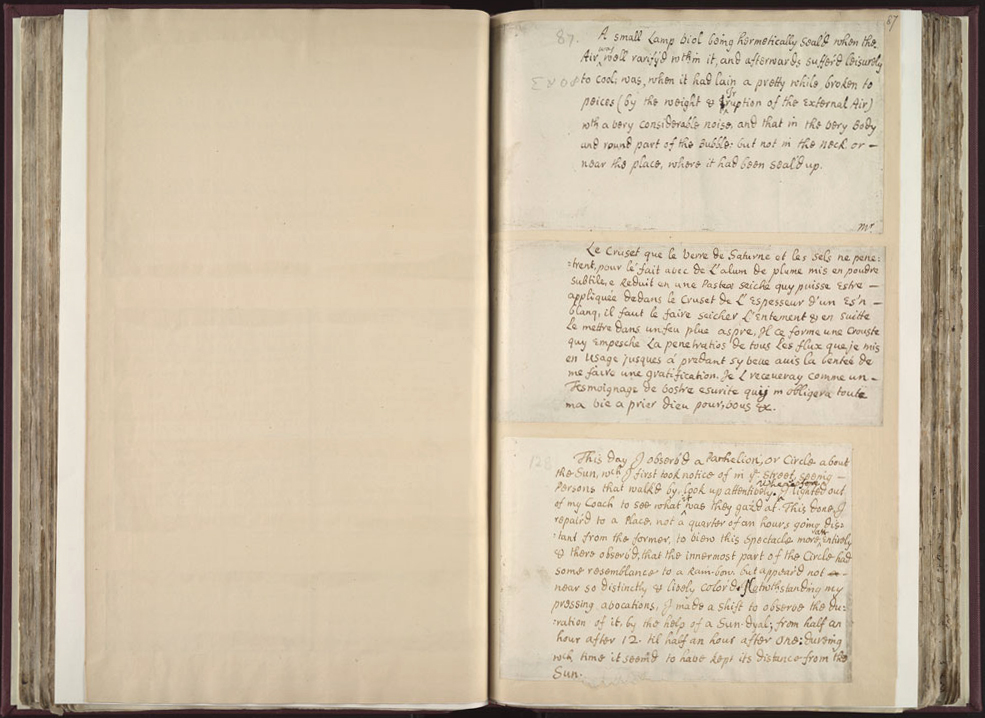 87
87.
A small Lamp viol being hermetically seal'd when the
Air was well rarify'd wthin it, and afterwards suffer'd leisurely
to cool: was, when it had lain a pretty while, broken to
peices (by the weight & Irruption of the External Air)
wth a very considerable noise, and that in the very Body
and round part of the Bubble: but not in the neck or —
near the place, where it had been seal'd up.
Mr.
Le Cruset que le verre de Saturne et les sels ne pene:
:trent, pour le fait avec de L'alum de plume mis en poudre
subtile, e Reduit en une Paste seiché quy puisse Estre —
appliquée dedans le Cruset de L'Espesseur d'un
blanq, il faut le faire seicher L'Entement & en suitte
Le mettre dans un feu plus aspre, Il ce forme une Crouste
quy Empesche La penetratios de tous Les flux que je mis
en Usage jusques á
me faire une gratification. Je L receueray comme un —
Tesmoignage de vostre quy m'obligera toute
ma vie a prier dieu pour vous &c.
128
This day I observ'd a Parhelion, or Circle about
the Sun, wch I first took notice of in ye Street, seeing —
Persons that walk'd by, look up attentively. Wherefore I lighted out
of my Coach to see what it was they gaz'd at. This done, I
repair'd to a Place, not a quarter of an hours going dis:
:tant from the former, to view this Spectacle more entirely
& there observ'd, that the innermost part of the Circle had
some resemblance to a Rain-bow, but appear'd not —
near so distinctly & lively color'd. Notwthstanding my
pressing avocations, I made a shift to observe the du:
:ration of it, by the help of a Sun-dyal; from half an
hour after 12. til half an hour after one: dureing
wch time it seem'd to have kept its distance from the
Sun.